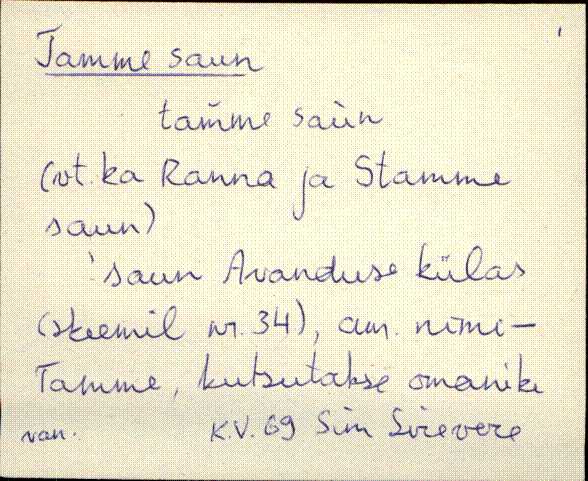 Tamme saun
tam̆me saùn
(vt. ka Ranna ja Stamme
saun)
saun Avanduse külas
(skeemil nr. 34), am. nimi -
Tamme, kutsutakse omaniku
van. K.V. 69 Siim Sirevere